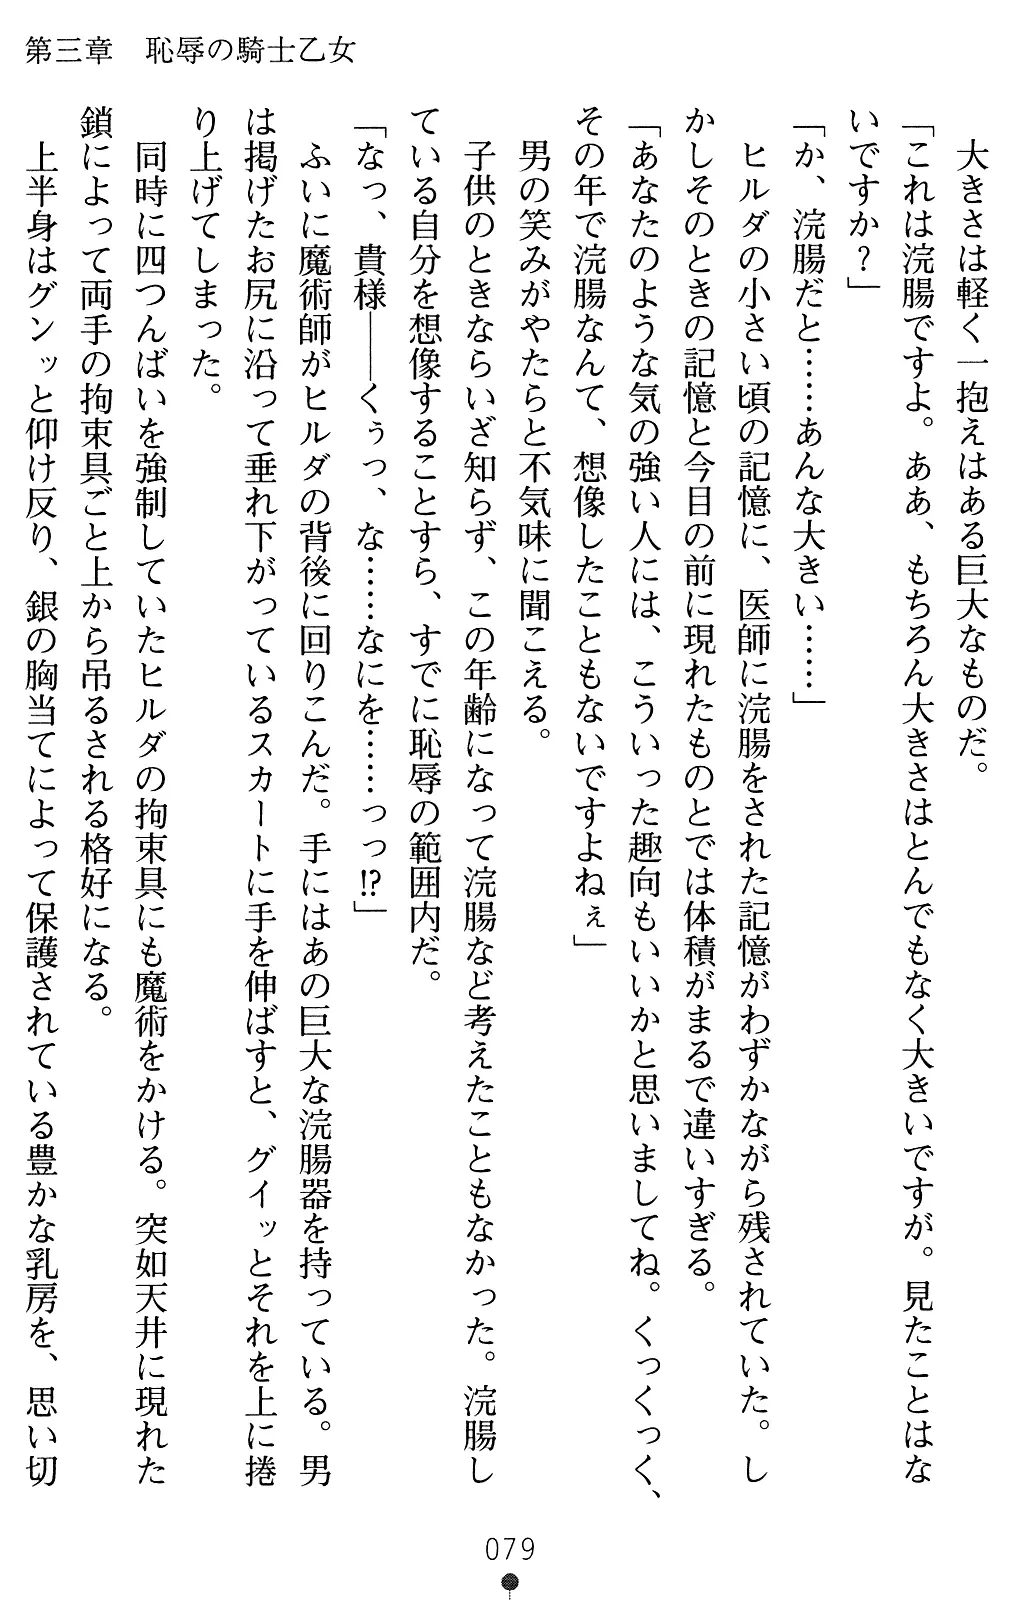 第三章　恥辱の騎士乙女
　大きさは軽く一抱えはある巨大なものだ。
「これは浣腸ですよ。ああ、もちろん大きさはとんでもなく大きいですが。見たことはな
いですか？」
「か、浣腸だと……あんな大きい……」
　ヒルダの小さい頃の記憶に、医師に浣腸をされた記憶がわずかながら残されていた。し
かしそのときの記憶と今目の前に現れたものとでは体積がまるで違いすぎる。
「あなたのような気の強い人には、こういった趣向もいいかと思いましてね。くっくっく、
その年で浣腸なんて、想像したこともないですよねぇ」
　男の笑みがやたらと不気味に聞こえる。
　子供のときならいざ知らず、この年齢になって浣腸など考えたこともなかった。浣腸し
ている自分を想像することすら、すでに恥辱の範囲内だ。
「なっ、貴様――くぅっ、な……なにを……っっ!?」
　ふいに魔術師がヒルダの背後に回りこんだ。手にはあの巨大な浣腸器を持っている。男
は掲げたお尻に沿って垂れ下がっているスカートに手を伸ばすと、グイッとそれを上に捲
り上げてしまった。
　同時に四つんばいを強制していたヒルダの拘束具にも魔術をかける。突如天井に現れた
鎖によって両手の拘束具ごと上から吊るされる格好になる。
　上半身はグンッと仰け反り、銀の胸当てによって保護されている豊かな乳房を、思い切
079